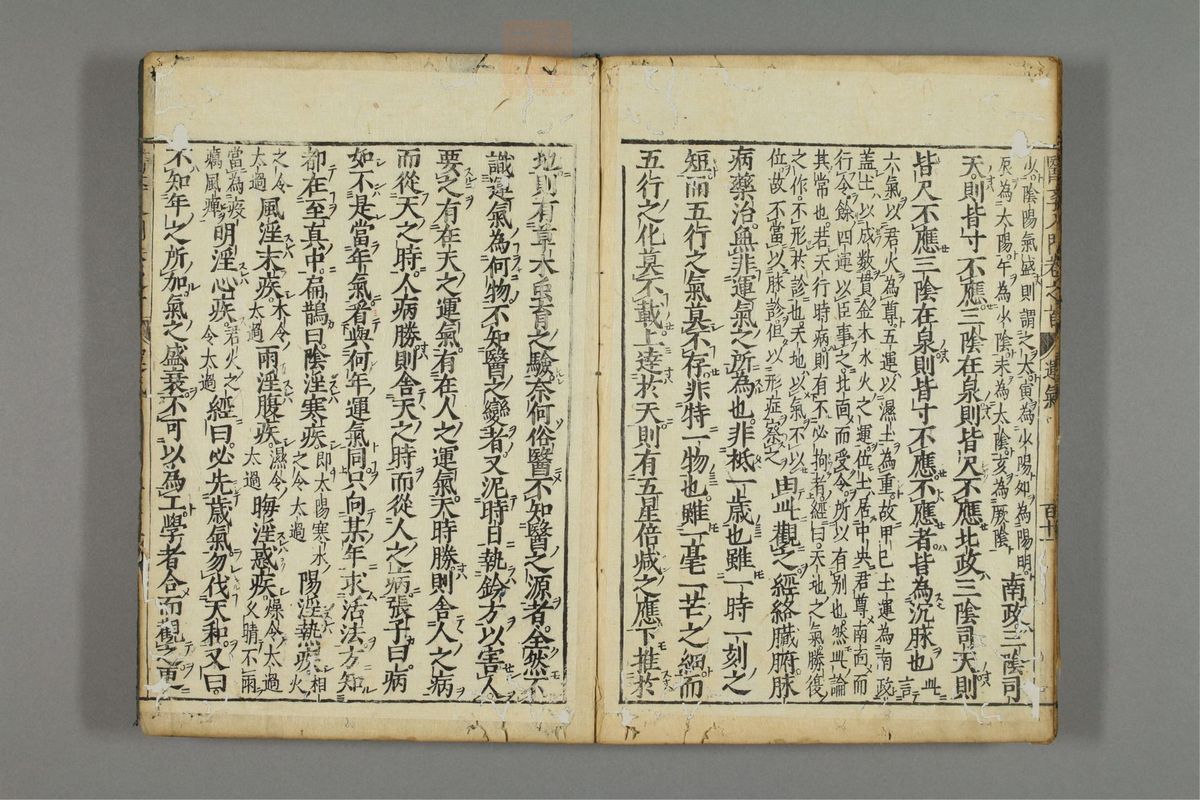 少陰陽氣盛則謂之太寅為少陽卯為陽明
辰為太陽午為少陰未為太陰亥為厥陰
南政三陰司
天則皆寸不應三陰在泉則皆尺不應北政三陰司天則
皆尺不應三陰在泉則皆寸不應不應者皆為沉脉也
此言
六氣以君火為尊五運以濕土為重故甲己土運為南政
蓋土以成數貫金木水火之運位土居中央君尊南面而
行令餘四運以臣事之北面而受令所以有別也然此論
其常也若天行時病則有不必拘者經曰天地之氣勝復
之作不形於診也天地以氣不以
位故不當以脉診但以形症察之
由此觀之經絡臟腑脉
病藥治無非運氣之所為也非柢一歲也雖一時一刻之
短而五行之氣莫不存非特一物也雖一毫一芒之細而
五行之化莫不載上達於天則有五星倍減之應下推於
地則有草木虫育之驗奈何俗醫不知醫之源者全然不
識運氣為何物不知醫之變者又泥時日執鈐方以害人
要之有在天之運氣有在人之運氣天時勝則舍人之病
而從天之時人病勝則舍天之時而從人之病張子曰病
如不是當年氣看與何年運氣同只向某年求活法方知
都在至真中扁鵲曰陰淫寒疾
即太陽寒水
之令太過
陽淫熱疾
相火
之令
太過
風淫末疾
木令
太過
雨淫腹疾
濕令
太過
晦淫惑疾
燥令太過
久晴不雨
當為疫
癘風瘴
明淫心疾
君火之
令太過
經曰必先歲氣勿伐天和又曰
不知年之所加氣之盛衰不可以為工學者合而觀之更
運氣